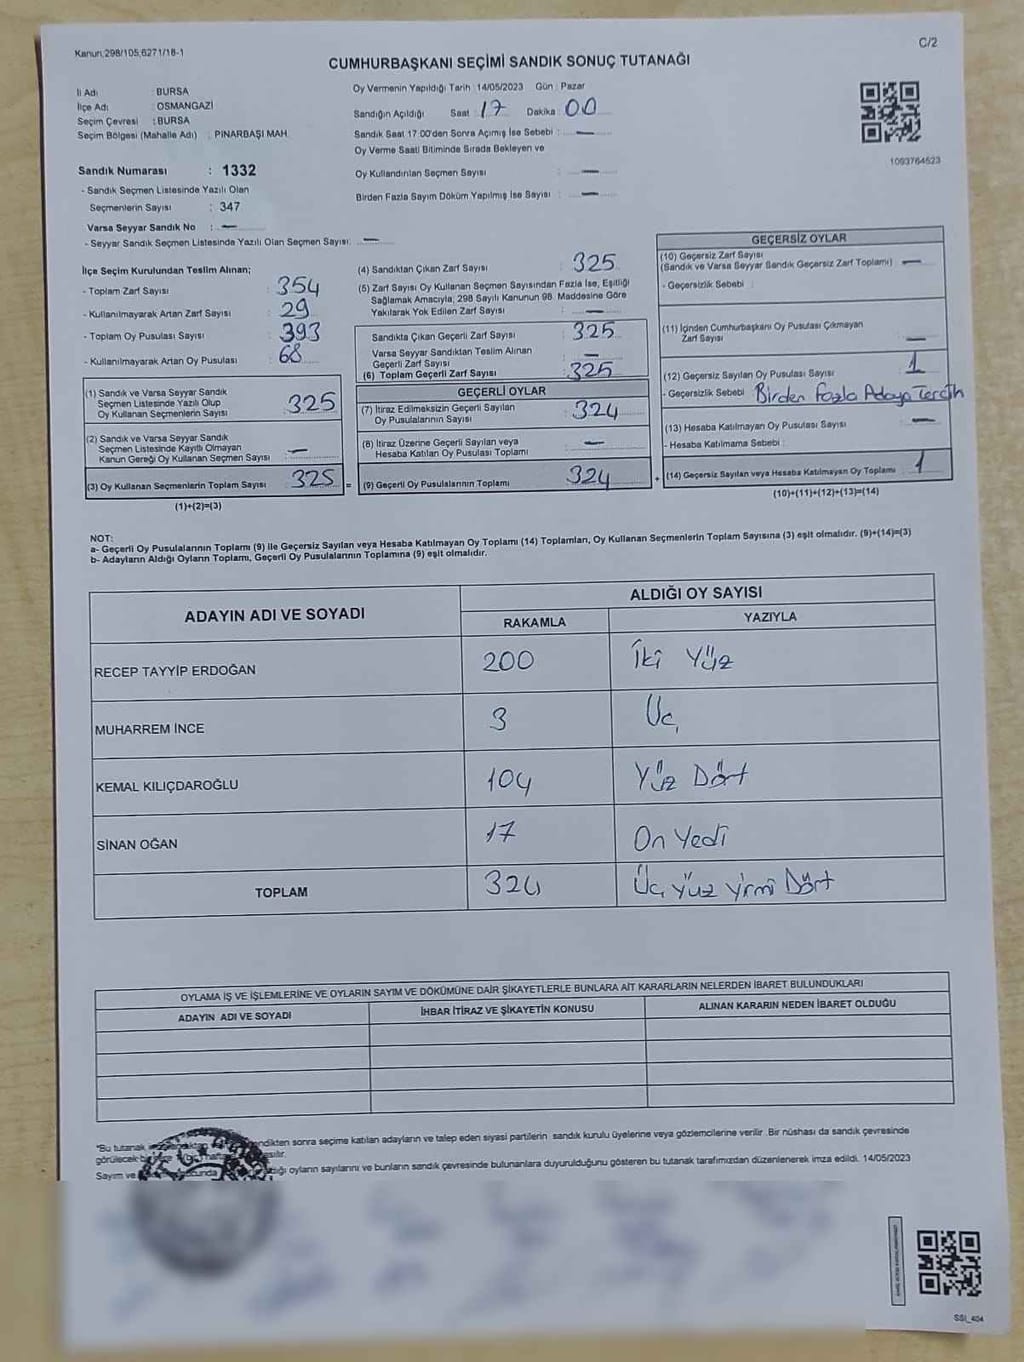 Kanun:298/105,6271/18-1
C/2
CUMHURBAŞKANI SEÇİMİ SANDIK SONUÇ TUTANAĞI
İl Adı : BURSA
İlçe Adı : OSMANGAZİ
Seçim Çevresi : BURSA
Seçim Bölgesi (Mahalle Adı) : PINARBAŞI MAH.
Oy Vermenin Yapıldığı Tarih : 14/05/2023 Gün : Pazar
Sandığın Açıldığı Saat : 17 Dakika : 00
Sandık Saat 17:00'den Sonra Açımış İse Sebebi : —
Oy Verme Saati Bitiminde Sırada Bekleyen ve
Oy Kullandırılan Seçmen Sayısı : —
Birden Fazla Sayım Döküm Yapılmış İse Sayısı : —
1093764523
Sandık Numarası : 1332
- Sandık Seçmen Listesinde Yazılı Olan
Seçmenlerin Sayısı : 347
Varsa Seyyar Sandık No : —
- Seyyar Sandık Seçmen Listesinde Yazılı Olan Seçmen Sayısı: —
İlçe Seçim Kurulundan Teslim Alınan;
- Toplam Zarf Sayısı : 354
- Kullanılmayarak Artan Zarf Sayısı : 29
- Toplam Oy Pusulası Sayısı : 393
- Kullanılmayarak Artan Oy Pusulası : 68
(1) Sandık ve Varsa Seyyar Sandık
Seçmen Listesinde Yazılı Olup
Oy Kullanan Seçmenlerin Sayısı : 325
(2) Sandık ve Varsa Seyyar Sandık
Seçmen Listesinde Kayıtlı Olmayan
Kanun Gereği Oy Kullanan Seçmen Sayısı : —
(3) Oy Kullanan Seçmenlerin Toplam Sayısı : 325 =
(1)+(2)=(3)
(4) Sandıktan Çıkan Zarf Sayısı : 325
(5) Zarf Sayısı Oy Kullanan Seçmen Sayısından Fazla İse, Eşitliği
Sağlamak Amacıyla; 298 Sayılı Kanunun 98. Maddesine Göre
Yakılarak Yok Edilen Zarf Sayısı : —
Sandıkta Çıkan Geçerli Zarf Sayısı : 325
Varsa Seyyar Sandıktan Teslim Alınan
Geçerli Zarf Sayısı : —
(6) Toplam Geçerli Zarf Sayısı : 325
GEÇERLİ OYLAR
(7) İtiraz Edilmeksizin Geçerli Sayılan
Oy Pusulalarının Sayısı : 324
(8) İtiraz Üzerine Geçerli Sayılan veya
Hesaba Katılan Oy Pusulası Toplamı : —
(9) Geçerli Oy Pusulalarının Toplamı : 324 +
GEÇERSİZ OYLAR
(10) Geçersiz Zarf Sayısı
(Sandık ve Varsa Seyyar Sandık Geçersiz Zarf Toplamı) : —
- Geçersizlik Sebebi :
(11) İçinden Cumhurbaşkanı Oy Pusulası Çıkmayan
Zarf Sayısı : —
(12) Geçersiz Sayılan Oy Pusulası Sayısı : 1
- Geçersizlik Sebebi : Birden fazla Adaya Tercih
(13) Hesaba Katılmayan Oy Pusulası Sayısı : —
- Hesaba Katılmama Sebebi :
(14) Geçersiz Sayılan veya Hesaba Katılmayan Oy Toplamı : 1
(10)+(11)+(12)+(13)=(14)
NOT:
a- Geçerli Oy Pusulalarının Toplamı (9) ile Geçersiz Sayılan veya Hesaba Katılmayan Oy Toplamı (14) Toplamları, Oy Kullanan Seçmenlerin Toplam Sayısına (3) eşit olmalıdır. (9)+(14)=(3)
b- Adayların Aldığı Oyların Toplamı, Geçerli Oy Pusulalarının Toplamına (9) eşit olmalıdır.
ADAYIN ADI VE SOYADI
ALDIĞI OY SAYISI
RAKAMLA YAZIYLA
RECEP TAYYİP ERDOĞAN 200 İki Yüz
MUHARREM İNCE 3 Üç
KEMAL KILIÇDAROĞLU 104 Yüz Dört
SİNAN OĞAN 17 On Yedi
TOPLAM 324 Üç Yüz Yirmi Dört
OYLAMA İŞ VE İŞLEMLERİNE VE OYLARIN SAYIM VE DÖKÜMÜNE DAİR ŞİKAYETLERLE BUNLARA AİT KARARLARIN NELERDEN İBARET BULUNDUKLARI
ADAYIN ADI VE SOYADI İHBAR İTİRAZ VE ŞİKAYETİN KONUSU ALINAN KARARIN NEDEN İBARET OLDUĞU
"Bu tutanak sonra seçime katılan adayların ve talep eden siyasi partilerin sandık kurulu üyelerine veya gözlemcilerine verilir. Bir nüshası da sandık çevresinde
görülecek
Sayım ve oyların sayılarını ve bunların sandık çevresinde bulunanlara duyurulduğunu gösteren bu tutanak tarafımızdan düzenlenerek imza edildi. 14/05/2023
SSI_404